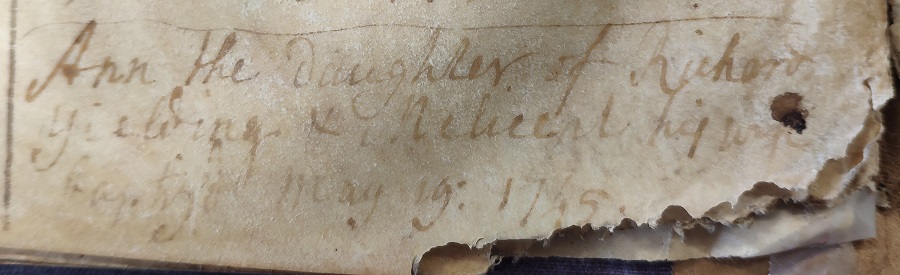 Ann the daughter of Richard
Yielding & Melicent his wife
baptiz'd May 19: 1745.